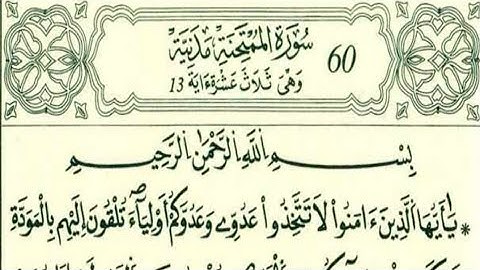 60 سُورَةُ المُمْتَحِنَةِ مَدَنِيَّة
وَهِيَ ثَلَاثَ عَشْرَةَ ءَايَة 13
بِسْمِ اِللَّهِ اِلرَّحْمَٰنِ اِلرَّحِيمِ
* يَٰأَيُّهَا اَلذِينَ ءَامَنُواْ لَا تَتَّخِذُواْ عَدُوِّے وَعَدُوَّكُمُۥٓ أَوْلِيَآءَ تُلْقُونَ إِلَيْهِم بِالْمَوَدَّةِ